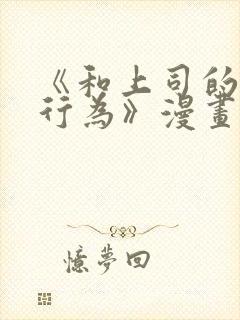 《和上司的
行為》漫畫
憶夢回